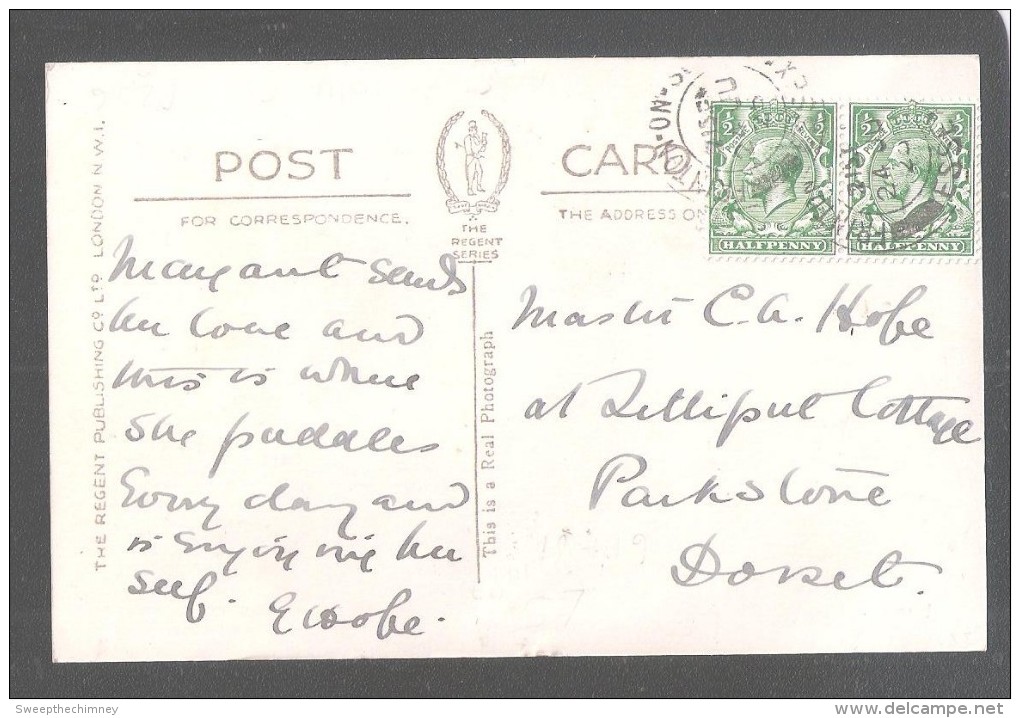 POST CARD
FOR CORRESPONDENCE.
THE ADDRESS ON
THE
REGENT
SERIES
THE REGENT PUBLISHING CO LTD LONDON N.W.1.
This is a Real Photograph
½ ½
½ ½
HALFPENNY
HALFPENNY
sends
her love and
this is where
she paddles
Every day and
is enjoying her
self.
E Hope.
Master C.A. Hope
at Lilliput Cottage
Parkstone
Dorset.
Sweepthechimney
www.delcampe.net